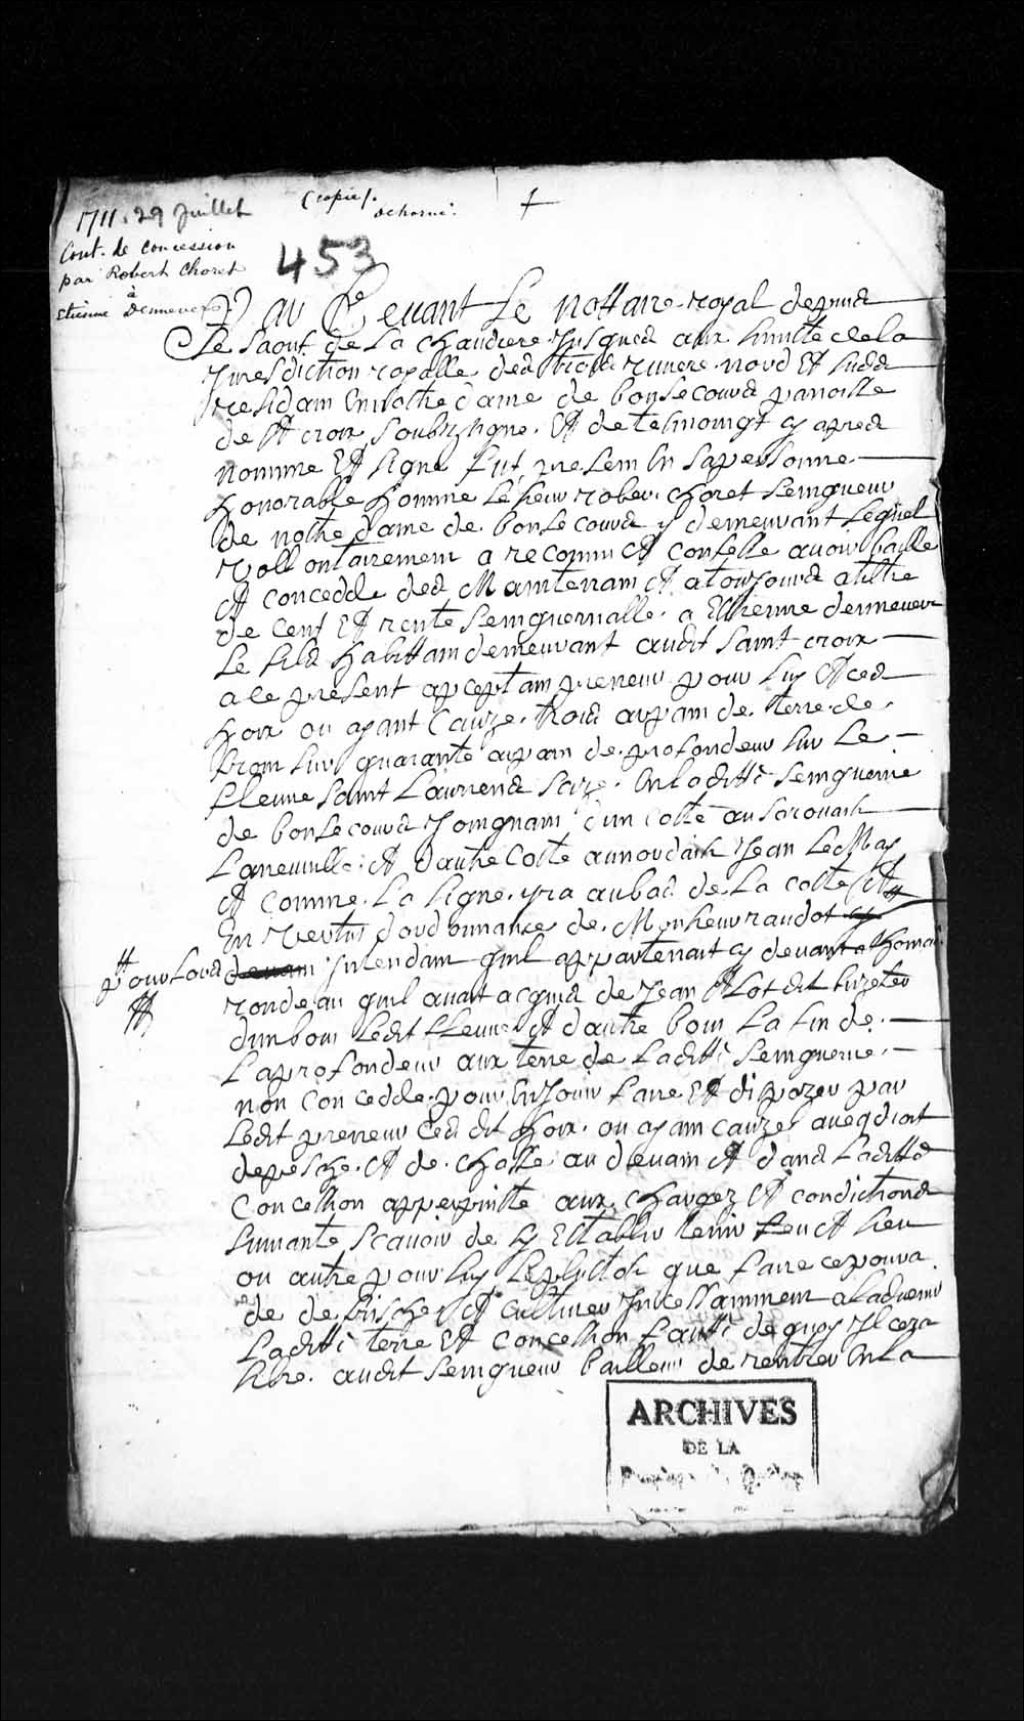 1711. 29 Juillet
(copie).
Cont. de concession
par Robert Choret
à
Etienne Denneverd
453
Par Devant Le nottaire royal depuis
Le Saout de La Chaudiere Jusques aux limitte de la
Juresdiction royalle des trois riviere nord Et sudds
residam En nostre dame de bonsecours paroisse
de Ste croix soubzsigne. Et de tesmoingt cy apres
nomme Et signe fut presem En sa personne
honorable homme Le sieur rober. Choret Seingneur
de notre dame de bonsecours y demeurant Lequel
vollontairement a reconnu Et confesse avoir baille
Et concedde des Maintenam Et a tousjours a tiltre
de cens Et rente Seingneurialle. a Estienne denneverd
Le fils habittam demeurant audit saint croix
a ce present apceptam preneur pour luy Et ces
hoir ou ayant cauze. trois arpam de. terre de.
from sur quarante arpam de. profondeur sur Le
fleuve saint Laurend size. En laditte Seingnerie
de bonsecours Joingnam d'un costé au sorouash
Laneuville. Et d'autre costé au nordaist Jean LeMay
Et comme. La ligne. ira au bas de La coste
En Vertus d'ordonnance de. Monsieur raudot cy
pour Lors
devam Intendam quil appartenait cy devant a thomas
rondeau quil avait acquis de Jean
d'un bou ledit fleuve Et d'autre bou La fin de.
La profondeur aux terre de Laditte Seingnerie.
non concedde. pour En Jouir faire Et dispozer par
Ledit preneur ces dit hoir. ou ayam cauze avecq droit
de pesche. Et de. chasse au devam Et dans Laditte
Concession apperpuitte aux. charges Et condictions
suivante scavoir de sy Establir tenir feu Et lieu
ou autre pour luy Le plustoh que faire ce poura.
de defrischer Et cultiver Incessamment a ladvenir
Laditte terre Et Concession fautte de quoy Il cera
libre. audit Seingneur bailleur de rentrer En la
ARCHIVES
DE LA